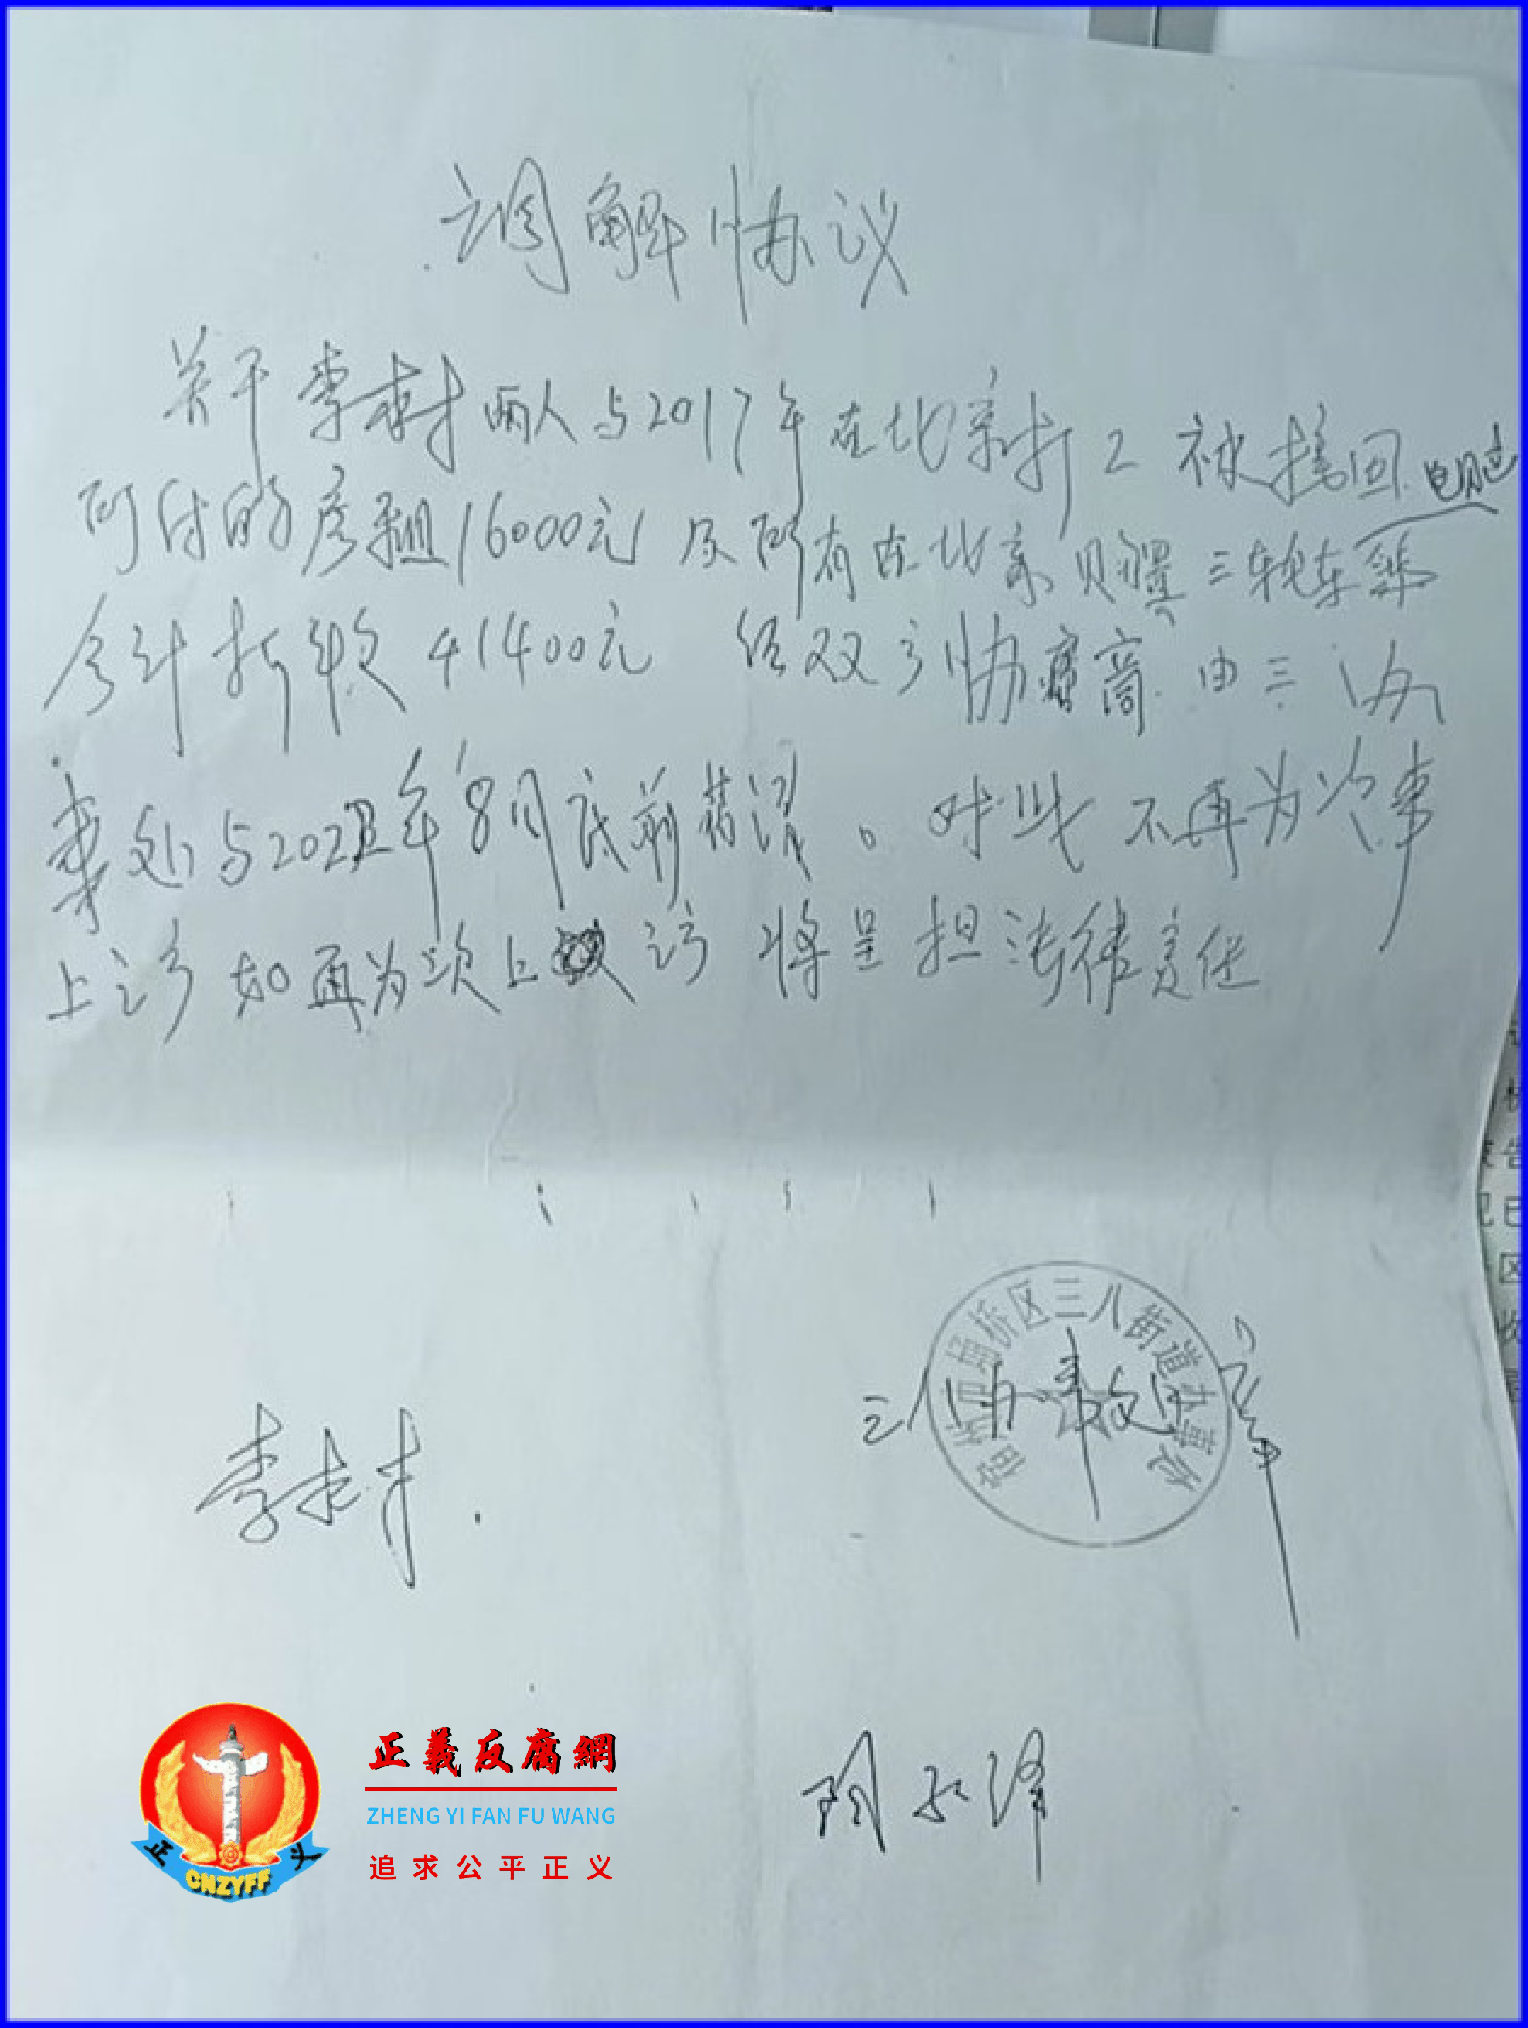 调解协议
关于李村才两人与2017年在北京打工被接回
所付的房租16000元及所有在北京购买三轮车等
合计折款41400元 经双方协商 由三八
办事处与2022年8月底前落实。对此不再为次事
上访 如再为次上访 将呈担法律责任
宿州市埇桥区三八街道办事处
李
正義反腐網
ZHENG YI FAN FU WANG
追求公平正义
正 义
CNZYFF